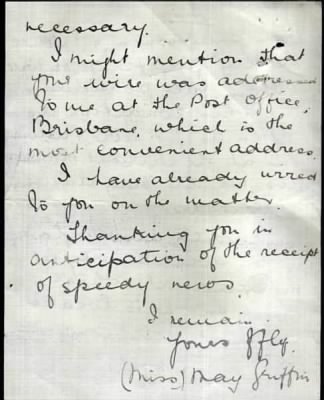 necessary.
I might mention that
your wire was addressed
to me at the Post Office,
Brisbane, which is the
most convenient address.
I have already wired
to you on the matter.
Thanking you in
anticipation of the receipt
of speedy news.
I remain
Yours ffly.
(Miss) May Griffin